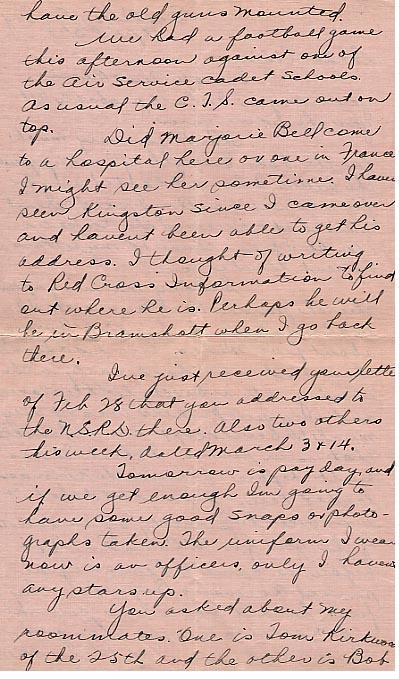 have the old guns mounted.
We had a football game
this afternoon against one of
the Air Service Cadet Schools.
As usual the C.T.S. came out on
top.
Did Marjorie Bell come
to a hospital here or one in France
I might see her sometime. I haven
seen Kingston since I came over
and havent been able to get his
address. I thought of writing
to Red Cross Information to find
out where he is. Perhaps he will
be in Bramshott when I go back
there.
I've just received your lette
of Feb 28 that you addressed to
the N.S.R.D. there. Also two others
this week, dated March 3 & 14.
Tomorrow is pay day, and
if we get enough I'm going to
have some good snaps or photo-
graphs taken. The uniform I wear
now is an officers, only I haven
any stars up.
You asked about my
roommates. One is Tom Kirkwoo
of the 25th and the other is Bob